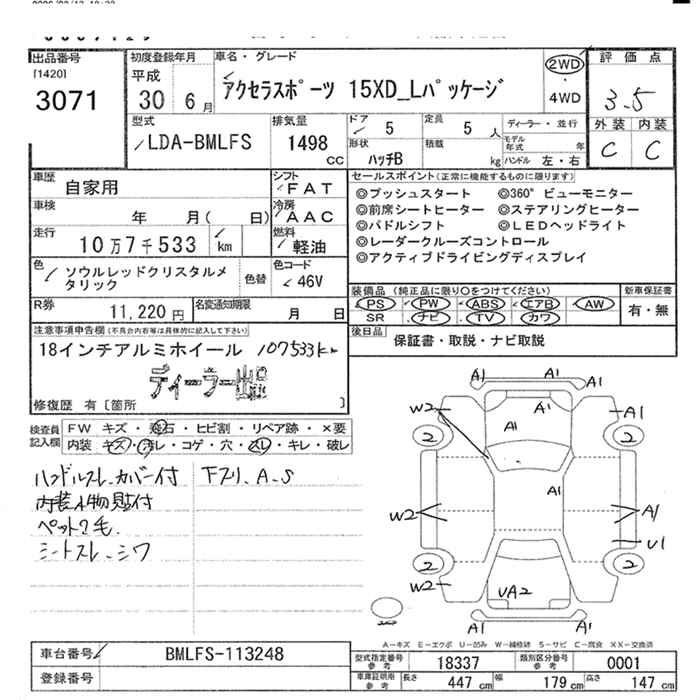 出品番号
[1420]
3071
初度登録年月
平成
30 6月
車名・グレード
アクセラスポーツ 15XD_Lパッケージ
2WD
・
4WD
評価点
3.5
外装 内装
C C
型式
LDA-BMLFS
排気量
1498
cc
ドア 5
形状 ハッチB
定員 5 人
積載 kg
ディーラー・並行
モデル年式 年
ハンドル 左・右
車歴 自家用
シフト FAT
車検 年 月( 日)
冷房 AAC
走行 10万7千533 km
燃料 軽油
色 ソウルレッドクリスタルメタリック
色替
色コード 46V
R券 11,220円
名変通知期限 月 日
セールスポイント(正常に機能するものに限ります)
◎プッシュスタート ◎360°ビューモニター
◎前席シートヒーター ◎ステアリングヒーター
◎パドルシフト ◎LEDヘッドライト
◎レーダークルーズコントロール
◎アクティブドライビングディスプレイ
装備品(純正品に限り○をつけてください)
新車保証書
PS PW ABS エアB AW
SR ナビ TV カワ
有・無
後日品
保証書・取説・ナビ取説
注意事項申告欄(不具合内容等は具体的に記入して下さい)
18インチアルミホイール 107533km
ディーラー
修復歴 有[箇所 ]
検査員記入欄
FW キズ・飛石・ヒビ割・リペア跡・×要
内装 キズ・汚レ・コゲ・穴・スレ・キレ・破レ
ハンドルスレ、カバー付 下ズリ、A、S
内装小物貼付
ペット?毛
シートスレ、シワ
A1 A1
W2 A1
2 A1 2
A1
W2 A1
U1
2 2
W2 UA2
A1 A1
A-キズ E-エクボ U-凹み W-補修跡 S-サビ C-腐食 XX-交換済
車台番号 BMLFS-113248
登録番号
型式指定番号 参考 18337
類別区分番号 参考 0001
車庫証明用 参考
長さ 447 cm 幅 179 cm 高さ 147 cm